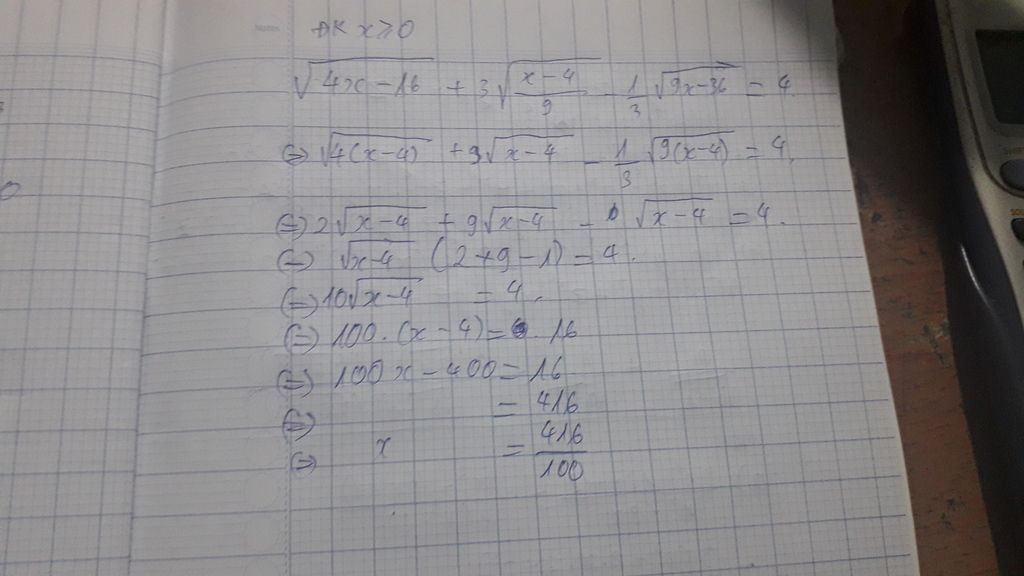 ĐK x ≥ 0
√(4x − 16) + 3√((x − 4)/9) − 1/3 √(9x − 36) = 4
⇔ √(4(x − 4)) + 9√(x − 4) − 1/3 √(9(x − 4)) = 4.
⇔ 2√(x − 4) + 9√(x − 4) − √(x − 4) = 4.
⇔ √(x − 4) (2 + 9 − 1) = 4.
⇔ 10√(x − 4) = 4.
⇔ 100.(x − 4) = 16
⇔ 100x − 400 = 16
⇔ = 416
⇔ x = 416/100